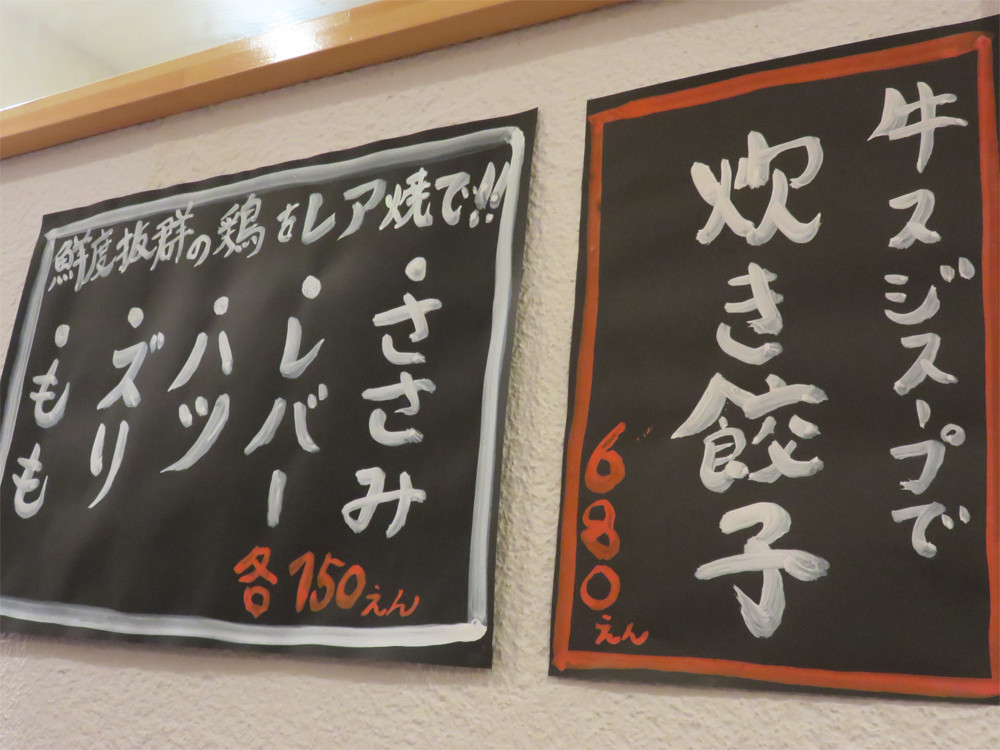 鮮度抜群の鶏をレア焼で!!
・ささみ
・レバー
・ハツ
・ズリ
・もも
各150えん
牛スジスープで
炊き餃子
680えん